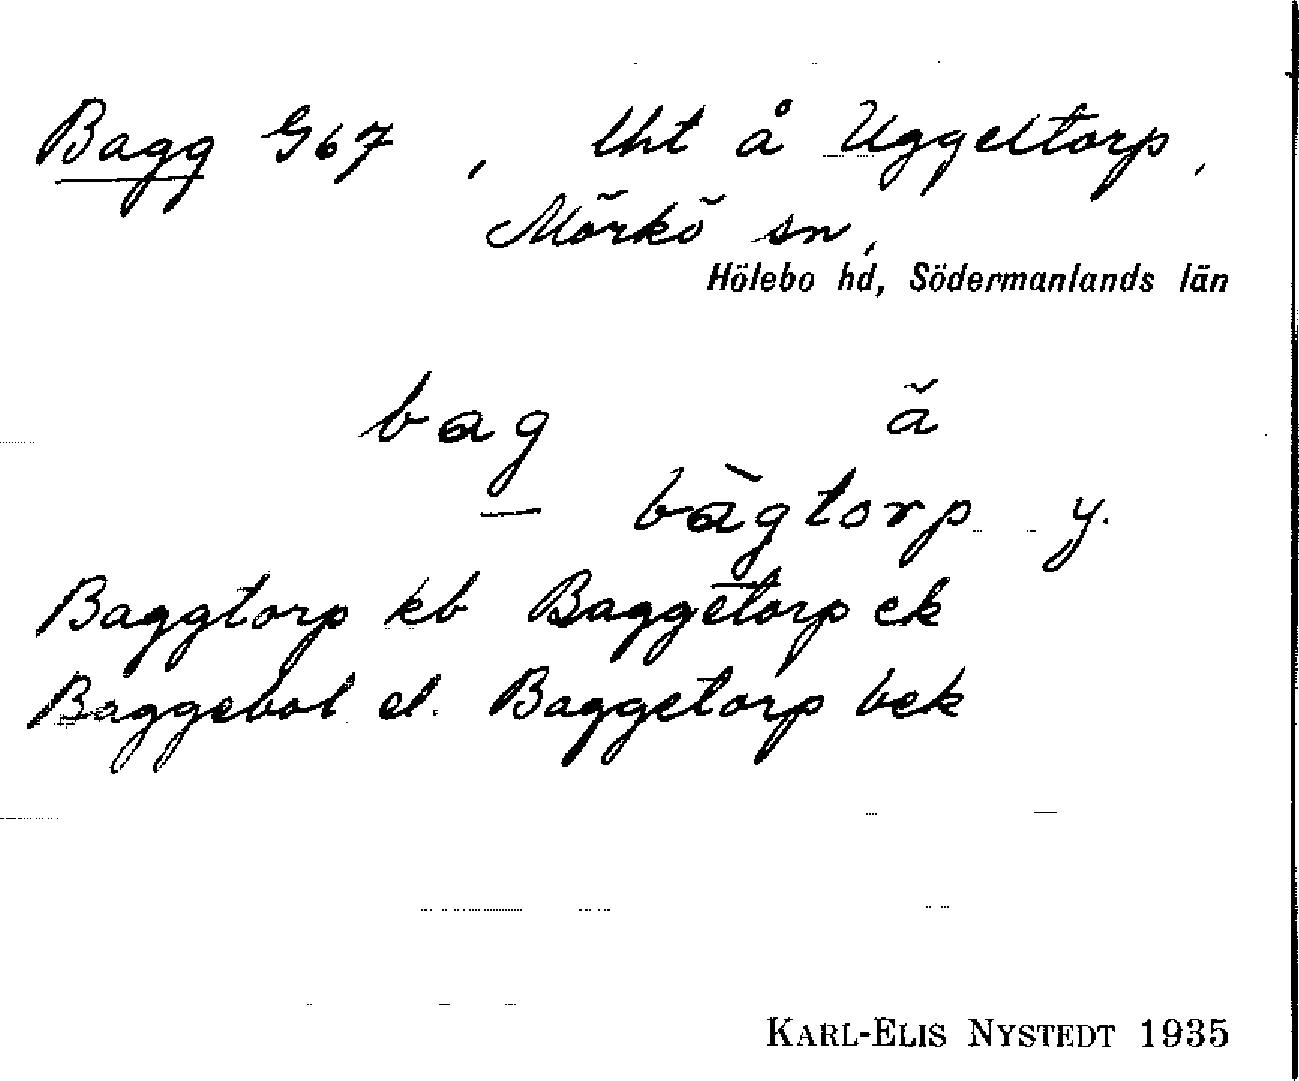 Bagg G67, lht å Uggeltorp,
Mörkö sn,
Hölebo hd, Södermanlands län
bag ă
— bàgtorp y.
Baggtorp kb Baggetorp ek
Baggebol el. Baggetorp bek
KARL-ELIS NYSTEDT 1935